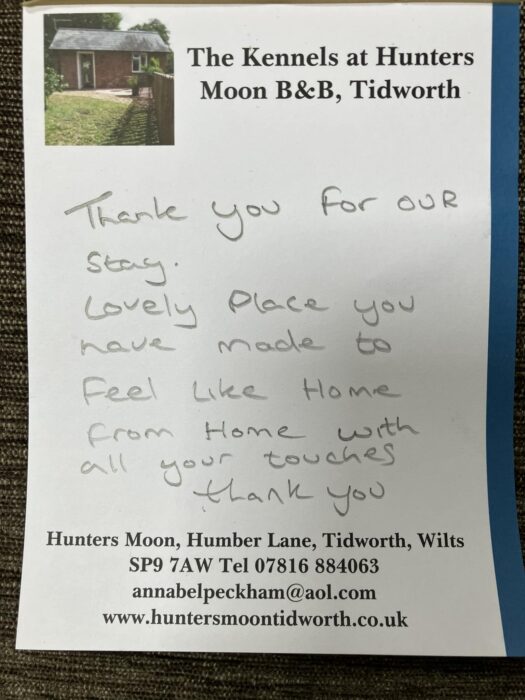 The Kennels at Hunters
Moon B&B, Tidworth
Thank you for our
stay.
Lovely Place you
have made to
Feel Like Home
From Home with
all your touches
thank you
Hunters Moon, Humber Lane, Tidworth, Wilts
SP9 7AW Tel 07816 884063
annabelpeckham@aol.com
www.huntersmoontidworth.co.uk